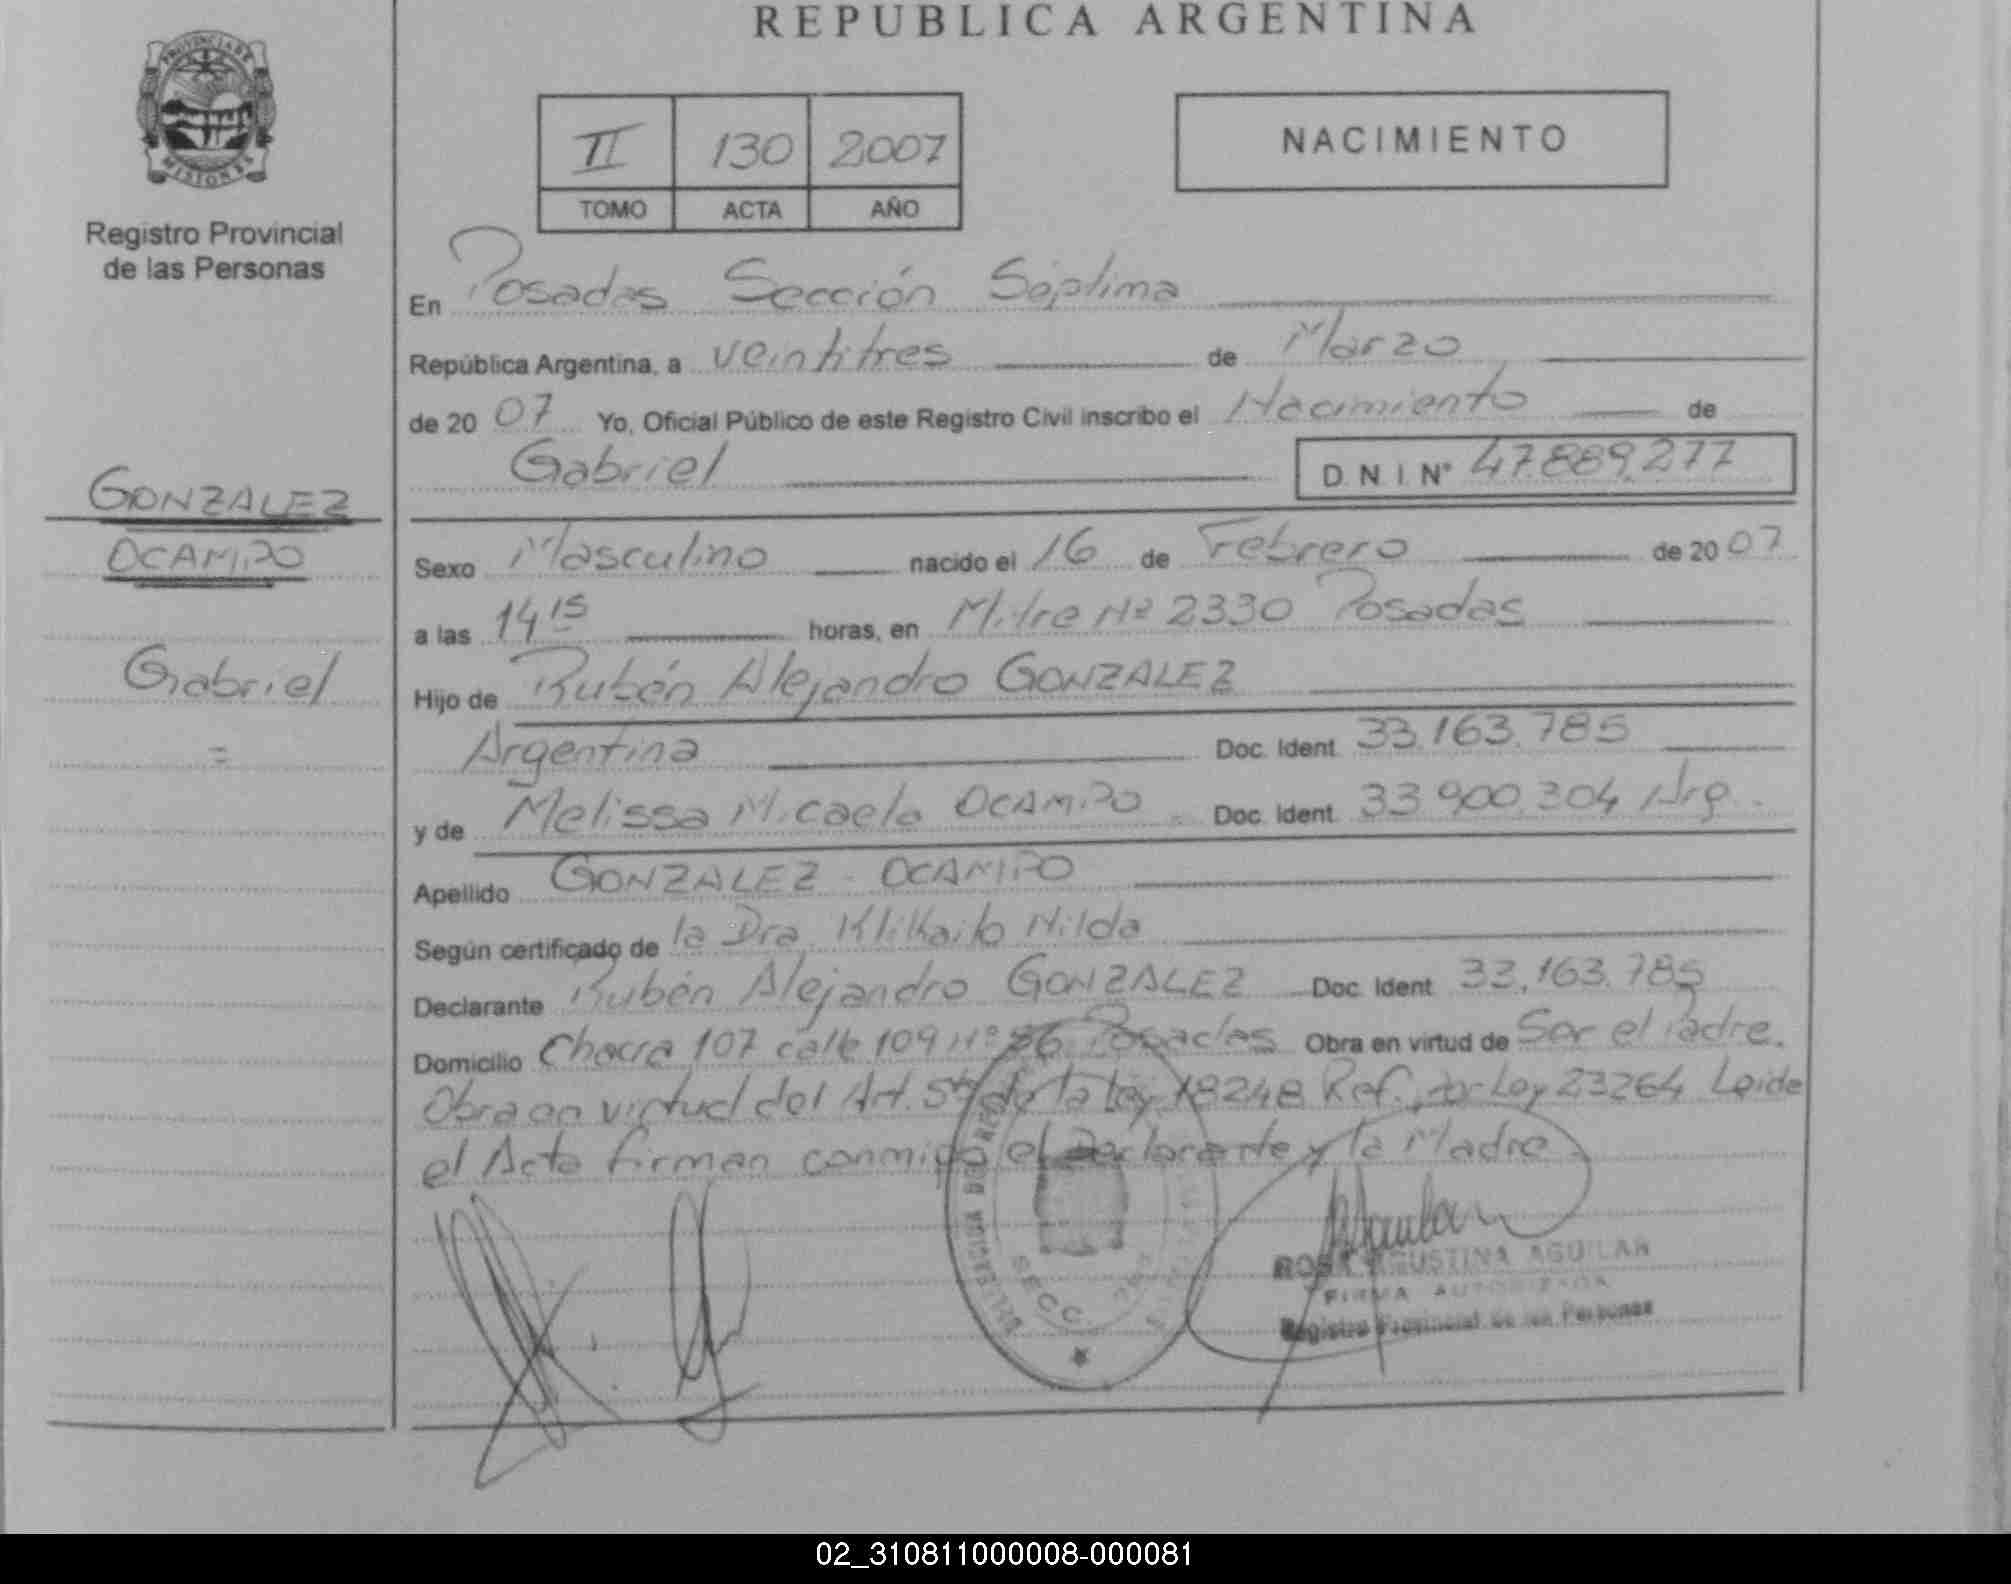 REPUBLICA ARGENTINA
PROVINCIA DE
MISIONES
Registro Provincial
de las Personas
II 130 2007
TOMO ACTA AÑO
NACIMIENTO
En Posadas Sección Séptima
República Argentina, a veintitres de Marzo
de 20 07 Yo, Oficial Público de este Registro Civil inscribo el Nacimiento de
Gabriel D.N.I. Nº 47.889.277
GONZALEZ
OCAMPO
Gabriel
=
Sexo Masculino nacido el 16 de Febrero de 20 07
a las 14 15 horas, en Mitre Nº 2330 Posadas
Hijo de Rubén Alejandro GONZALEZ
Argentina Doc. Ident. 33.163.785
y de Melissa Micaela OCAMPO Doc. Ident. 33.900.304 Arg.
Apellido GONZALEZ - OCAMPO
Según certificado de la Dra. Nilda
Declarante Rubén Alejandro GONZALEZ Doc. Ident. 33.163.785
Domicilio Chacra 107 calle 109 Nº Posadas Obra en virtud de Ser el Padre.
Obra en virtud del Art. 5to de la Ley 18248 Ref. por Ley 23264 Leide
el Acta firman conmigo el Declarante y la Madre
SECC.
ROSA AGUSTINA AGUILAR
FIRMA AUTORIZADA
Registro Provincial de las Personas
02_310811000008-000081